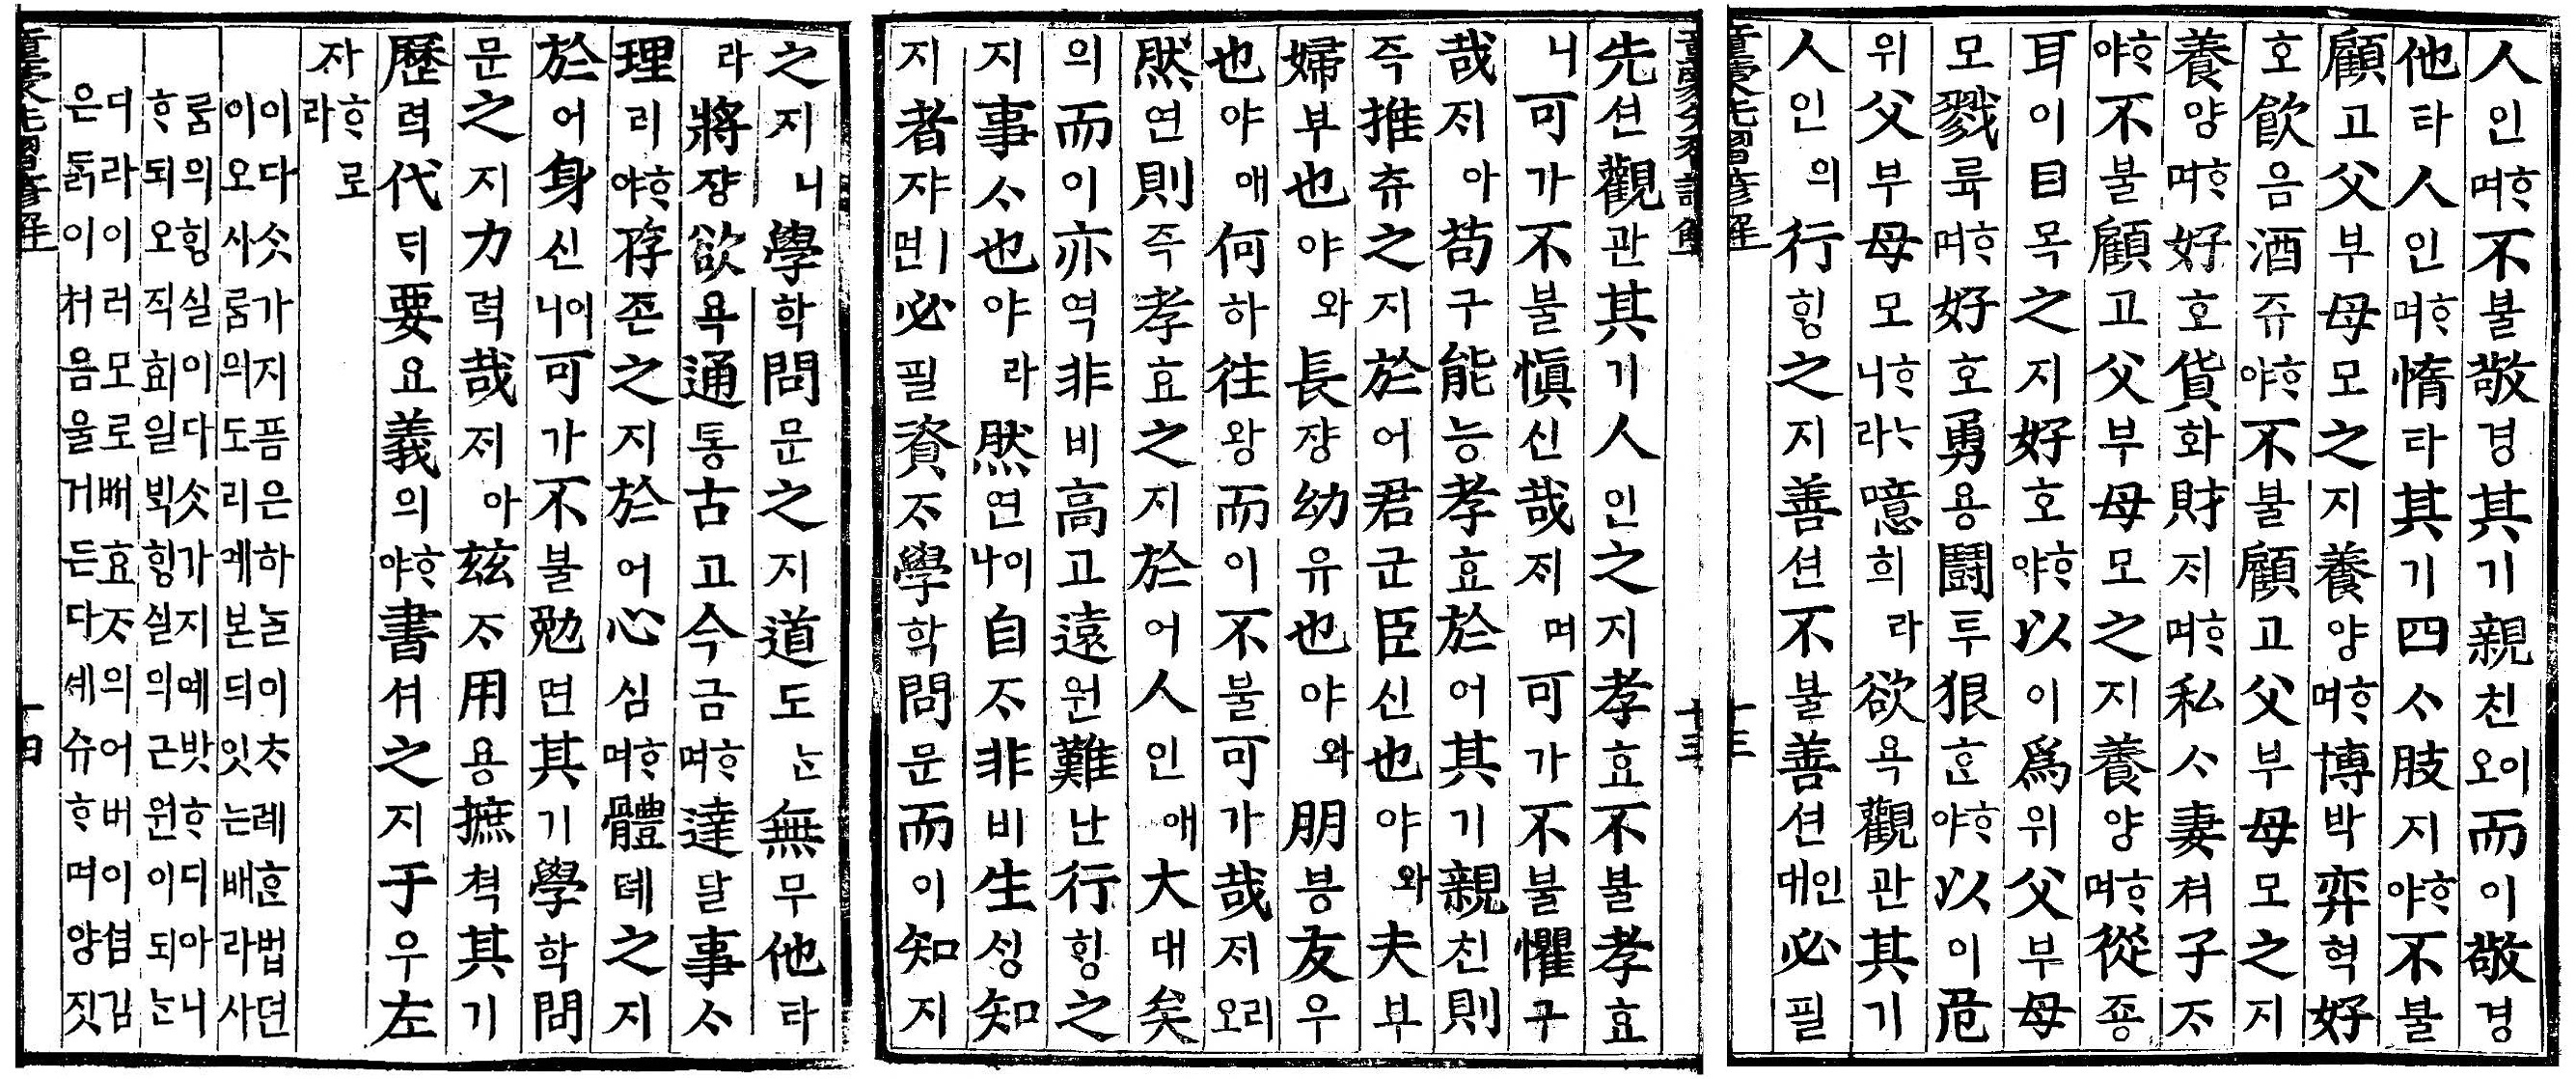 人인ᄒᆞ며不불敬경其기親친이오而이敬경
他타人인ᄒᆞ며惰타其기四ᄉᆞ肢지ᄒᆞ야不불
顧고父부母모之지養양ᄒᆞ며博박弈혁好
호飮음酒쥬ᄒᆞ야不불顧고父부母모之지
養양ᄒᆞ며好호貨화財ᄌᆡᄒᆞ며私ᄉᆞ妻쳐子ᄌᆞ
ᄒᆞ야不불顧고父부母모之지養양ᄒᆞ며從죵
耳이目목之지好호ᄒᆞ야以이爲위父부母
모戮륙ᄒᆞ며好호勇용鬪투狠ᄒᆞᆫᄒᆞ야以이危
위父부母모ᄒᆞᄂᆞ니라噫희라欲욕觀관其기
人인의行ᄒᆡᆼ之지善션不불善션인대必필
童蒙先習諺解 十三
先션觀관其기人인之지孝효不불孝효
니可가不불愼신哉ᄌᆡ며可가不불懼구
哉ᄌᆡ아苟구能능孝효於어其기親친則
즉推츄之지於어君군臣신也야와夫부
婦부也야와長쟝幼유也야와朋븡友우
也야애何하往왕而이不불可가哉ᄌᆡ리오
然연則즉孝효之지於어人인애大대矣
의而이亦역非비高고遠원難난行ᄒᆡᆼ之
지事ᄉᆞ也야라然연이나自ᄌᆞ非비生ᄉᆡᆼ知
지者쟈ㅣ면必필資ᄌᆞ學학問문而이知지
之지니學학問문之지道도ᄂᆞᆫ無무他타
라將쟝欲욕通통古고今금ᄒᆞ며達달事ᄉᆞ
理리ᄒᆞ야存존之지於어心심ᄒᆞ며體톄之지
於어身신이니可가不불勉면其기學학問
문之지力력哉ᄌᆡ아玆ᄌᆞ用용摭쳑其기
歷력代ᄃᆡ要요義의ᄒᆞ야書셔之지于우左
자ᄒᆞ로라
이다ᄉᆞᆺ가지품은하ᄂᆞᆯ이ᄎᆞ례ᄒᆞᆫ법뎐
이오사ᄅᆞᆷ의도리예본ᄃᆡ잇ᄂᆞᆫ배라사
ᄅᆞᆷ의ᄒᆡᆼ실이다ᄉᆞᆺ가지예밧ᄒᆞ디아니
ᄒᆞ되오직효ᄒᆡ일ᄇᆡᆨᄒᆡᆼ실의근원이되ᄂᆞᆫ
디라이러모로ᄡᅥ효ᄌᆞ의어버이셤김
은ᄃᆞᆰ이처음울거든다셰슈ᄒᆞ며양짓
童蒙先習諺解 十四